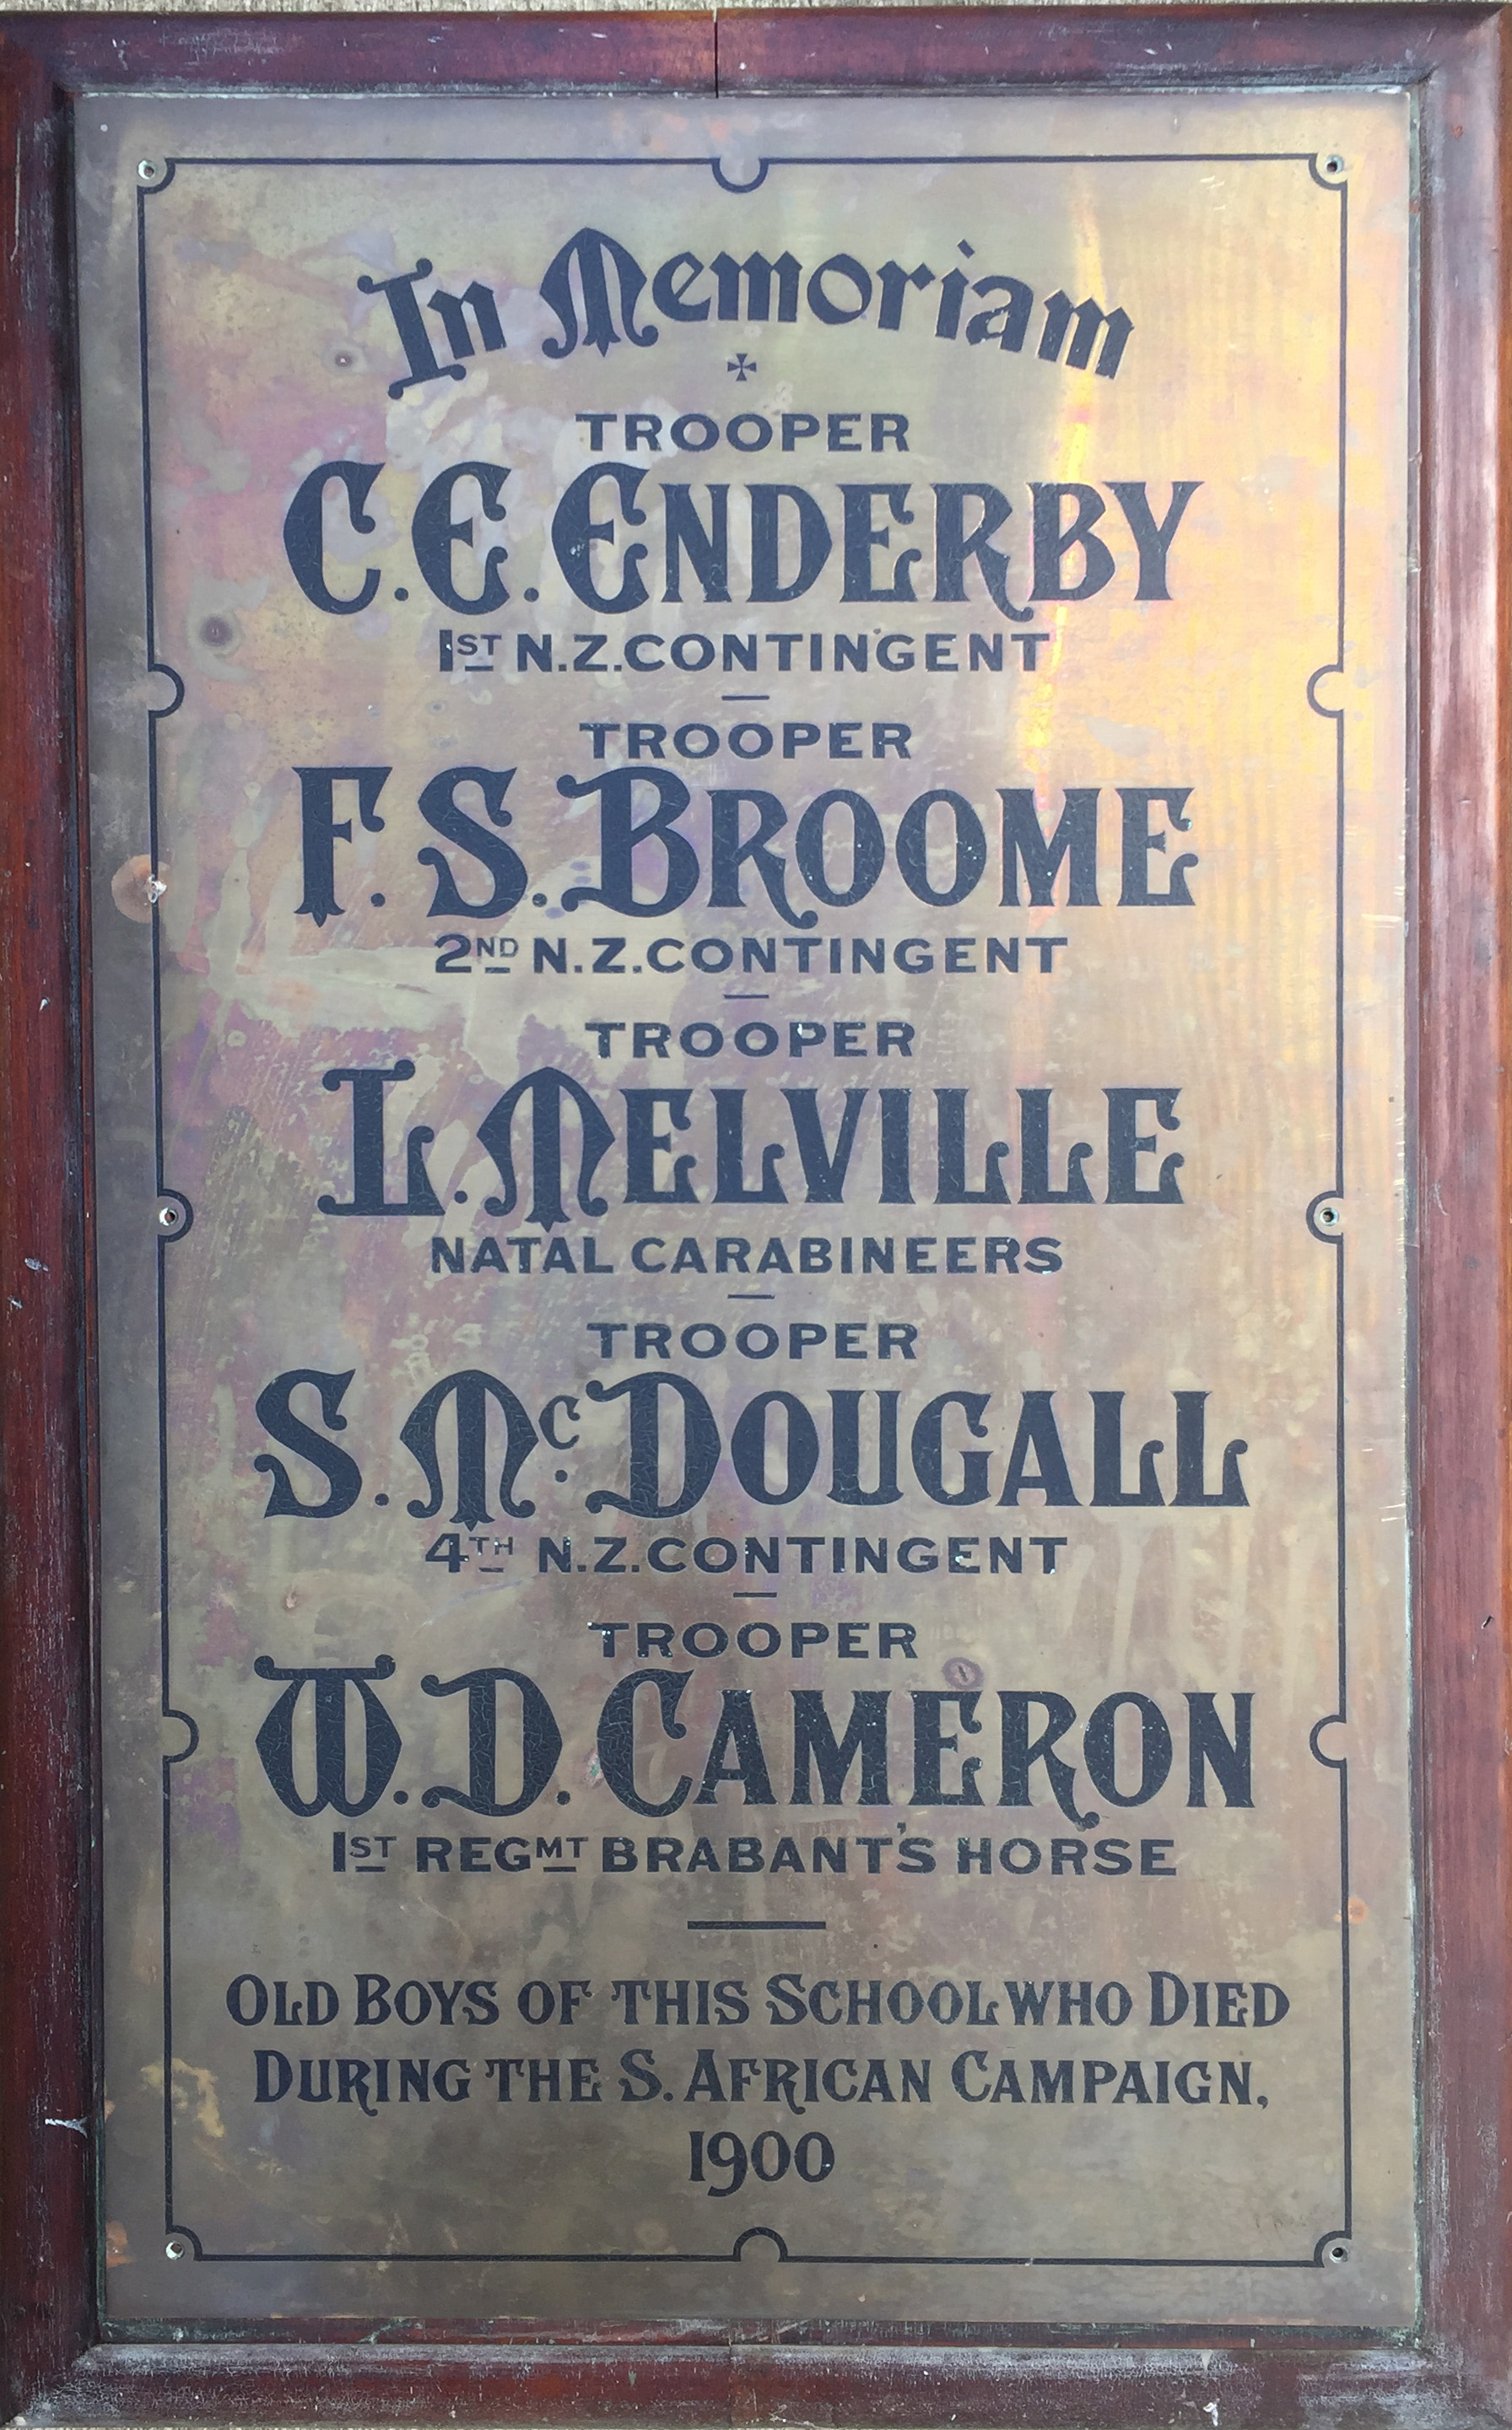 In Memoriam
TROOPER
C. E. ENDERBY
1ST N.Z. CONTINGENT
TROOPER
F. S. BROOME
2ND N.Z. CONTINGENT
TROOPER
L. MELVILLE
NATAL CARABINEERS
TROOPER
S. Mc. DOUGALL
4TH N.Z. CONTINGENT
TROOPER
W. D. CAMERON
1ST REGMT BRABANT'S HORSE
OLD BOYS OF THIS SCHOOL WHO DIED
DURING THE S. AFRICAN CAMPAIGN,
1900